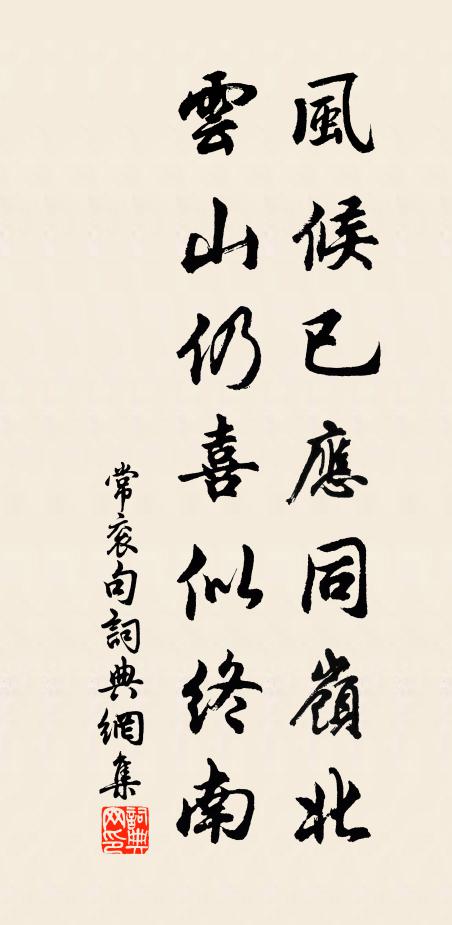 風候已應同嶺北
雲山仍喜似終南
常衮句詞典網集
詞典网印